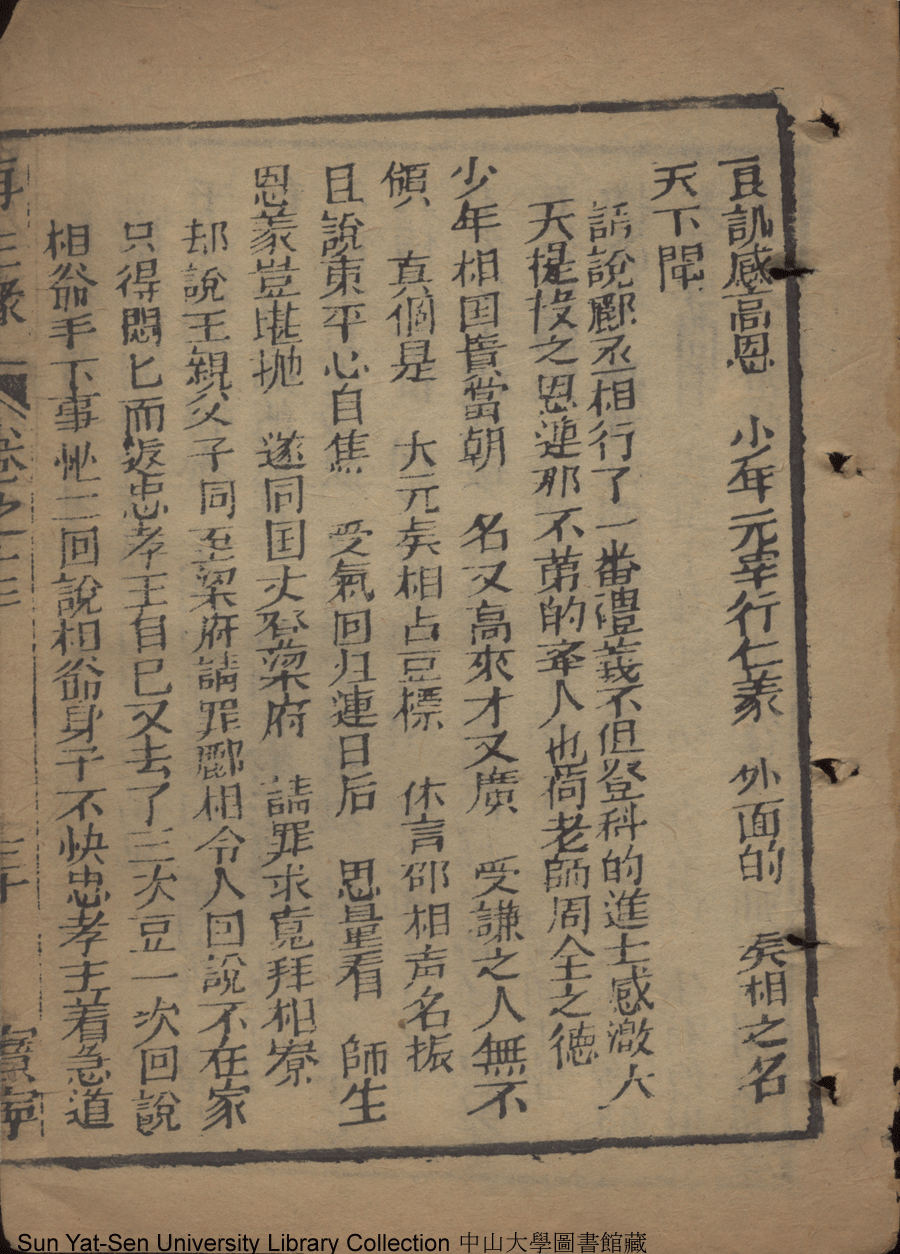 良訓感高恩　少年元宰行仁義　外面的　矣相之名
天下聞
話說酈丞相行了一番禮義不但登科的進士感激大
天提投之恩連那不第的举人也荷老師周全之德
少年相国貴當朝　名又高來才又廣　受謙之人無不
傾　真個是　大元矣相占豆標　休言邵相声名振
且說東平心自焦　受氣回归連日后　思量看　師生
恩義豈堪抛　遂同国丈登梁府　請罪求寬拜相寮
却說王親父子同至梁府請罪酈相令人回說不在家
只得悶匕而返忠孝王自已又去了三次豆一次回說
相爺手下事忙二回說相爺身子不快忠孝王着急道
再生縁　卷之十三　三十
Sun Yat-Sen University Library Collection 中山大學圖書館藏